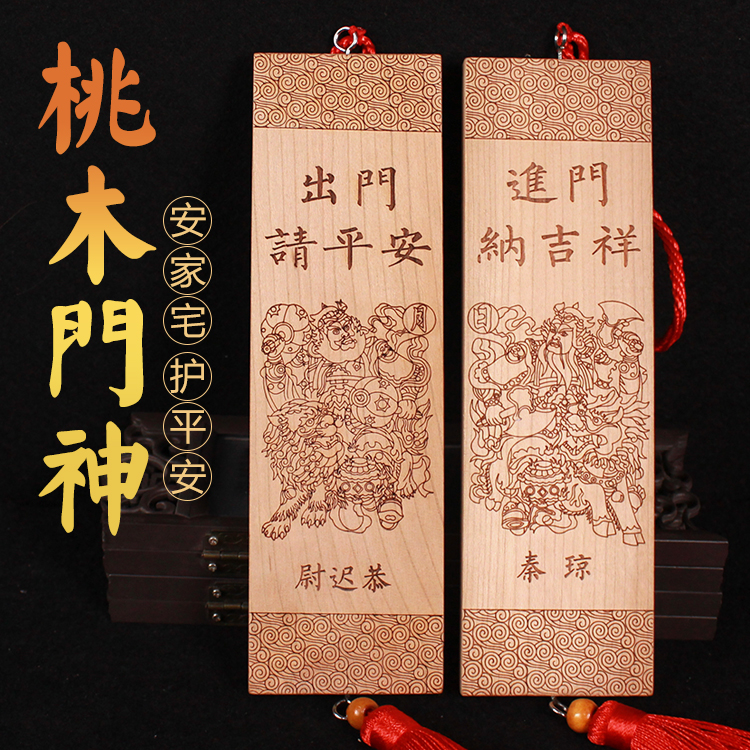 桃木門神
安家宅护平安
出門
請平安
月
尉迟恭
進門
納吉祥
日
秦琼